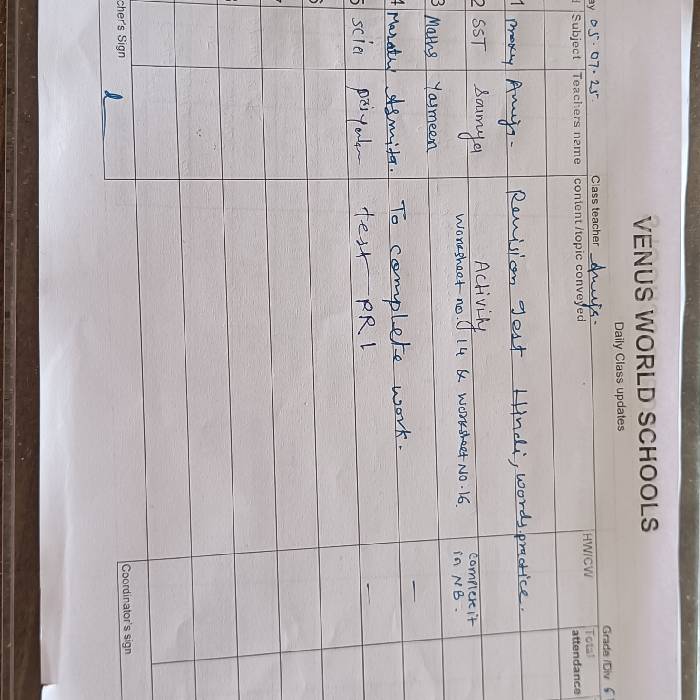 VENUS WORLD SCHOOLS
Daily Class updates
ay 05.07.25. Class teacher Anuja. Grade /Div 6
d Subject Teachers name content/topic conveyed HW/CW Total attendance
1 proxy Anuja. Revision Test Hindi, words practice.
2 SST Saumya Activity
3 Maths Yasmeen Worksheet no. 14 & worksheet No. 16. Complete it in NB.
4 Marathi Asmita. To complete work. —
5 Scie test PR1 —
6
7
cher's Sign Coordinator's sign